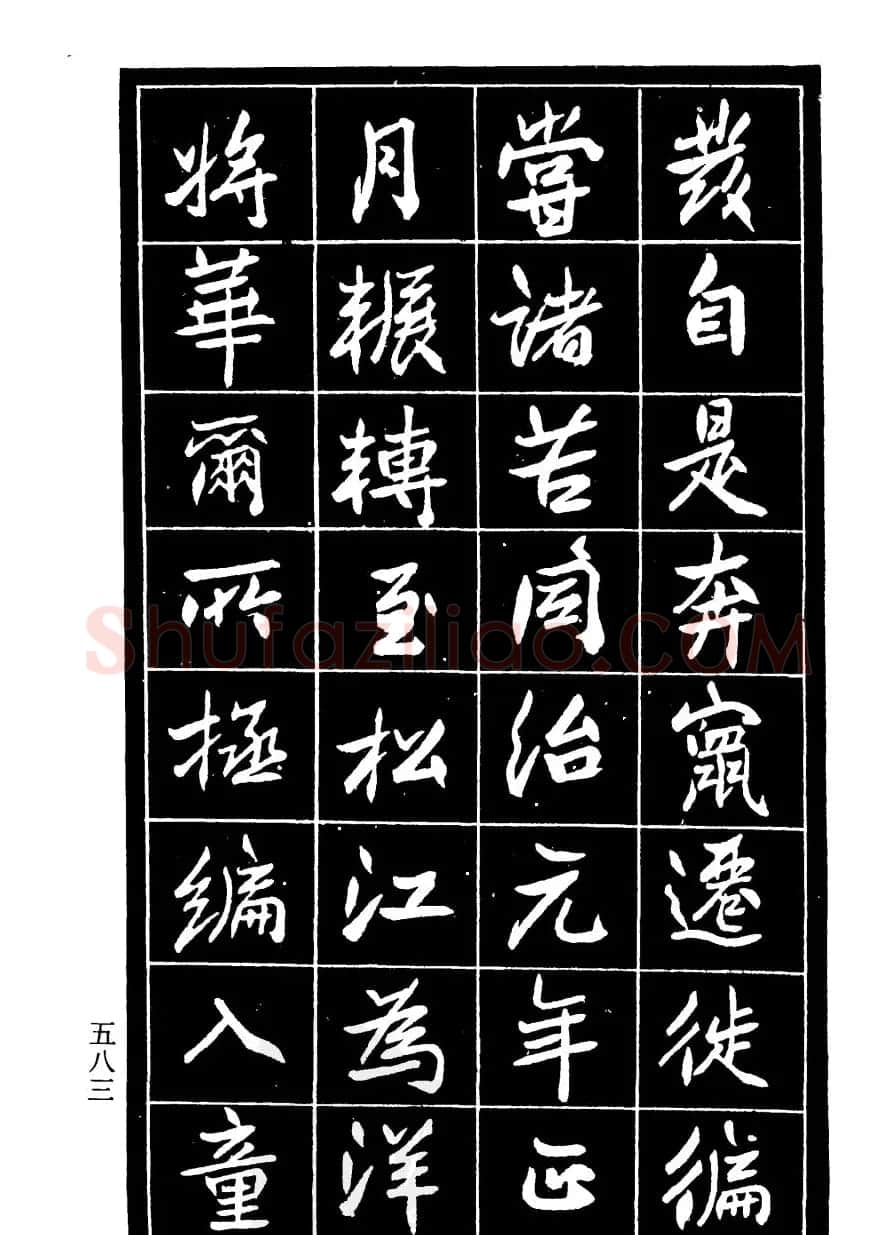 發自是奔竄遷徙徧
嘗諸苦同治元年正
月輾轉至松江為洋
將華爾所拯編入童
五八三
Shufaziliao.COM